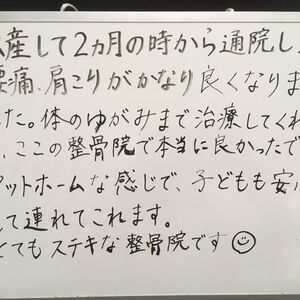 産して2ヵ月の時から通院し
腰痛、肩こりがかなり良くなりま
た。体のゆがみまで治療してくれ
、ここの整骨院で本当に良かったで
ットホームな感じで、子どもも安
して連れてこれます。
とてもステキな整骨院です☺